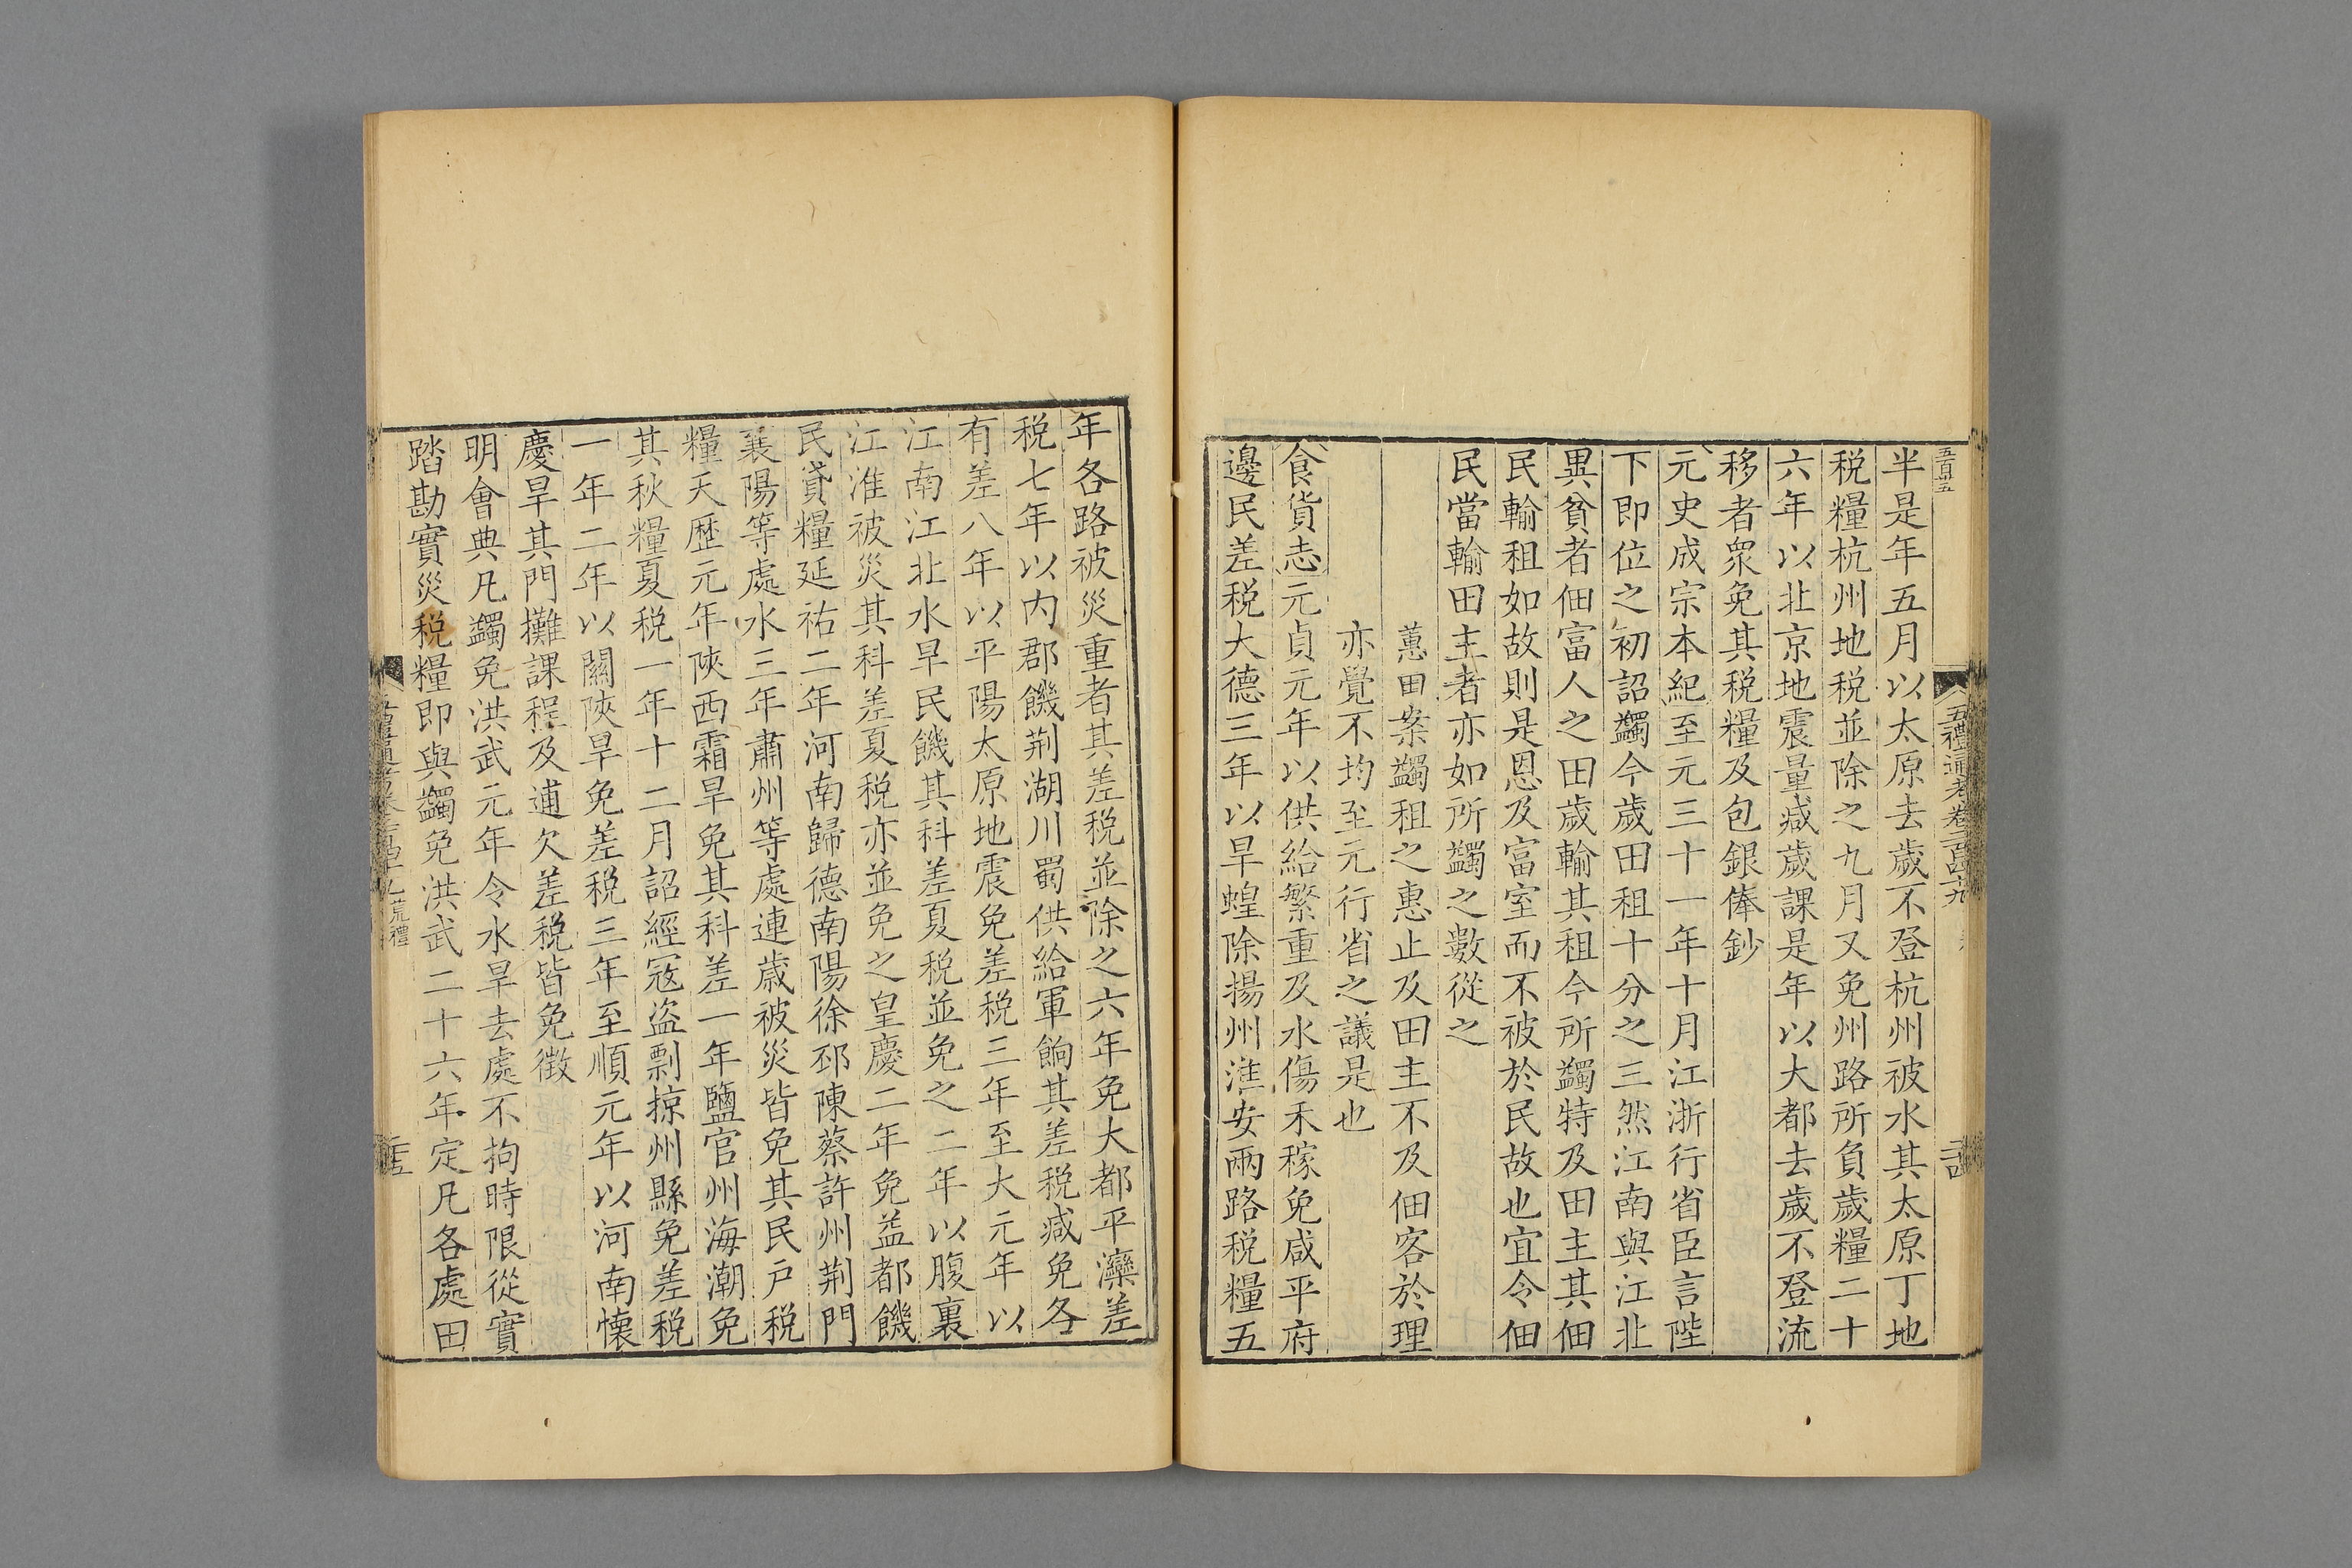 五百卅五
五禮通考卷二百四十九
半是年五月以太原去歲不登杭州被水其太原丁地
税糧杭州地税並除之九月又免州路所負歲糧二十
六年以北京地震量减歲課是年以大都去歲不登流
移者衆免其税糧及包銀俸鈔
元史成宗本紀至元三十一年十月江浙行省臣言陛
下即位之初詔蠲今歲田租十分之三然江南與江北
異貧者佃富人之田歲輸其租今所蠲特及田主其佃
民輸租如故則是恩及富室而不被於民故也宜令佃
民當輸田主者亦如所蠲之數從之
蕙田案蠲租之惠止及田主不及佃客於理
亦覺不均至元行省之議是也
食貨志元貞元年以供給繁重及水傷禾稼免咸平府
邊民差税大德三年以旱蝗除揚州淮安兩路税糧五
年各路被災重者其差税並除之六年免大都平灤差
税七年以内郡饑荆湖川蜀供給軍餉其差税减免各
有差八年以平陽太原地震免差税三年至大元年以
江南江北水旱民饑其科差夏税並免之二年以腹裏
江淮被災其科差夏税亦並免之皇慶二年免益都饑
民貸糧延祐二年河南歸德南陽徐邳陳蔡許州荆門
襄陽等處水三年肅州等處連歲被災皆免其民戸税
糧天歷元年陝西霜旱免其科差一年鹽官州海潮免
其秋糧夏税一年十二月詔經寇盜剽掠州縣免差税
一年二年以關陝旱免差税三年至順元年以河南懷
慶旱其門攤課程及逋欠差税皆免徵
明會典凡蠲免洪武元年令水旱去處不拘時限從實
踏勘實災税糧即與蠲免洪武二十六年定凡各處田
荒禮